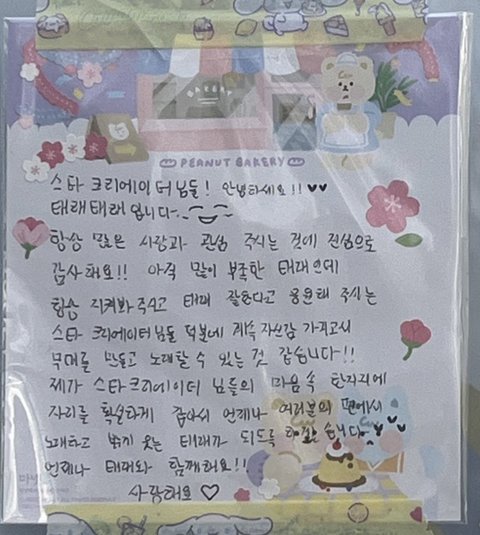 BAKERY
PEANUT BAKERY
스타 크리에이터님들! 안녕하세요!! ♥♥
태래태래입니다..
항상 많은 사랑과 관심 주시는 것에 진심으로
감사해요!! 아직 많이 부족한 태래인데
항상 지켜봐주시고 태래 잘한다고 응원해 주시는
스타 크리에이터님들 덕분에 계속 자신감 가지고서
무대를 만들고 노래할 수 있는 것 같습니다!!
제가 스타크리에이터 님들의 마음속 한자리에
자리를 확실하게 잡아서 언제나 여러분의 편에서
노래하고 밝게 웃는 태래가 되도록 하겠습니다
언제나 태래와 함께해요!!
사랑해요 ♡